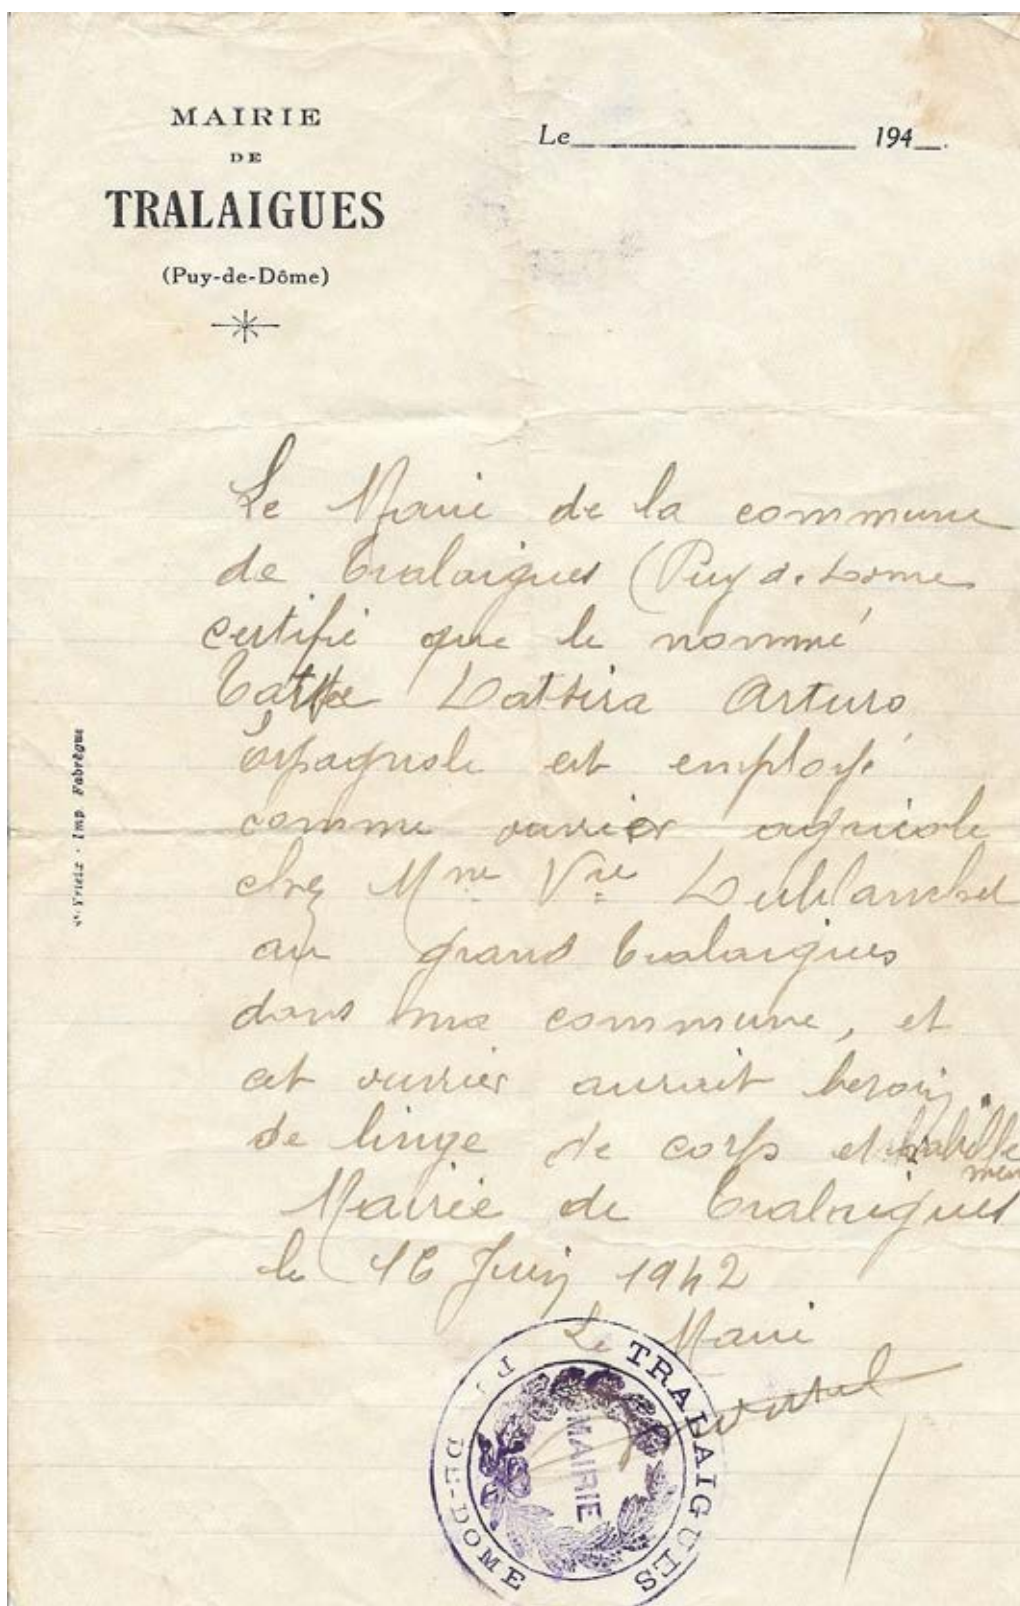 MAIRIE
DE
TRALAIGUES
(Puy-de-Dôme)
Le 194
Le Maire de la commune
de Tralaigues (Puy de Dome
certifie que le nommé
Arturo
Espagnole est employé
comme ouvrier agricole
chez Mme Vve Dublanchet
au grand Tralaigues
dans ma commune, et
cet ouvrier aurait besoin
de linge de corps et habille
ment
Mairie de Tralaigues
le 16 Juin 1942
Le Maire
Imp. Fabrègue
TRALAIGUES
MAIRIE
DE-DOME